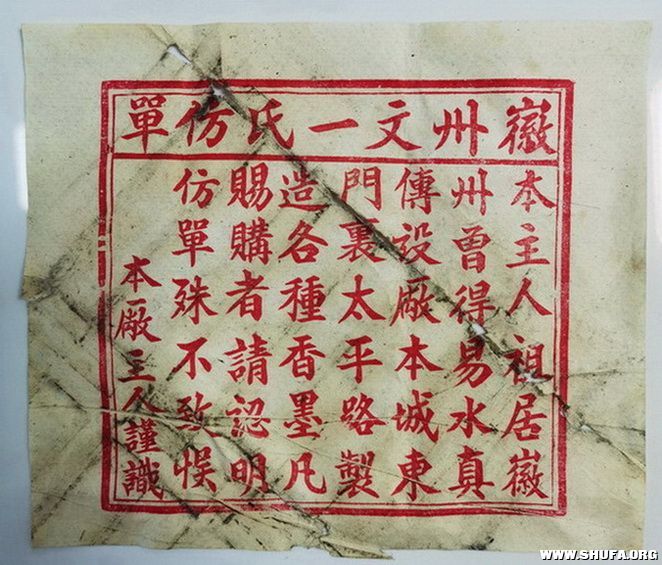 徽州文一氏仿單
本主人祖居徽
州曾得易水真
傳設廠本城東
門裏太平路製
造各種香墨凡
賜購者請認明
仿單殊不致悮
本廠主人謹識
WWW.SHUFA.ORG